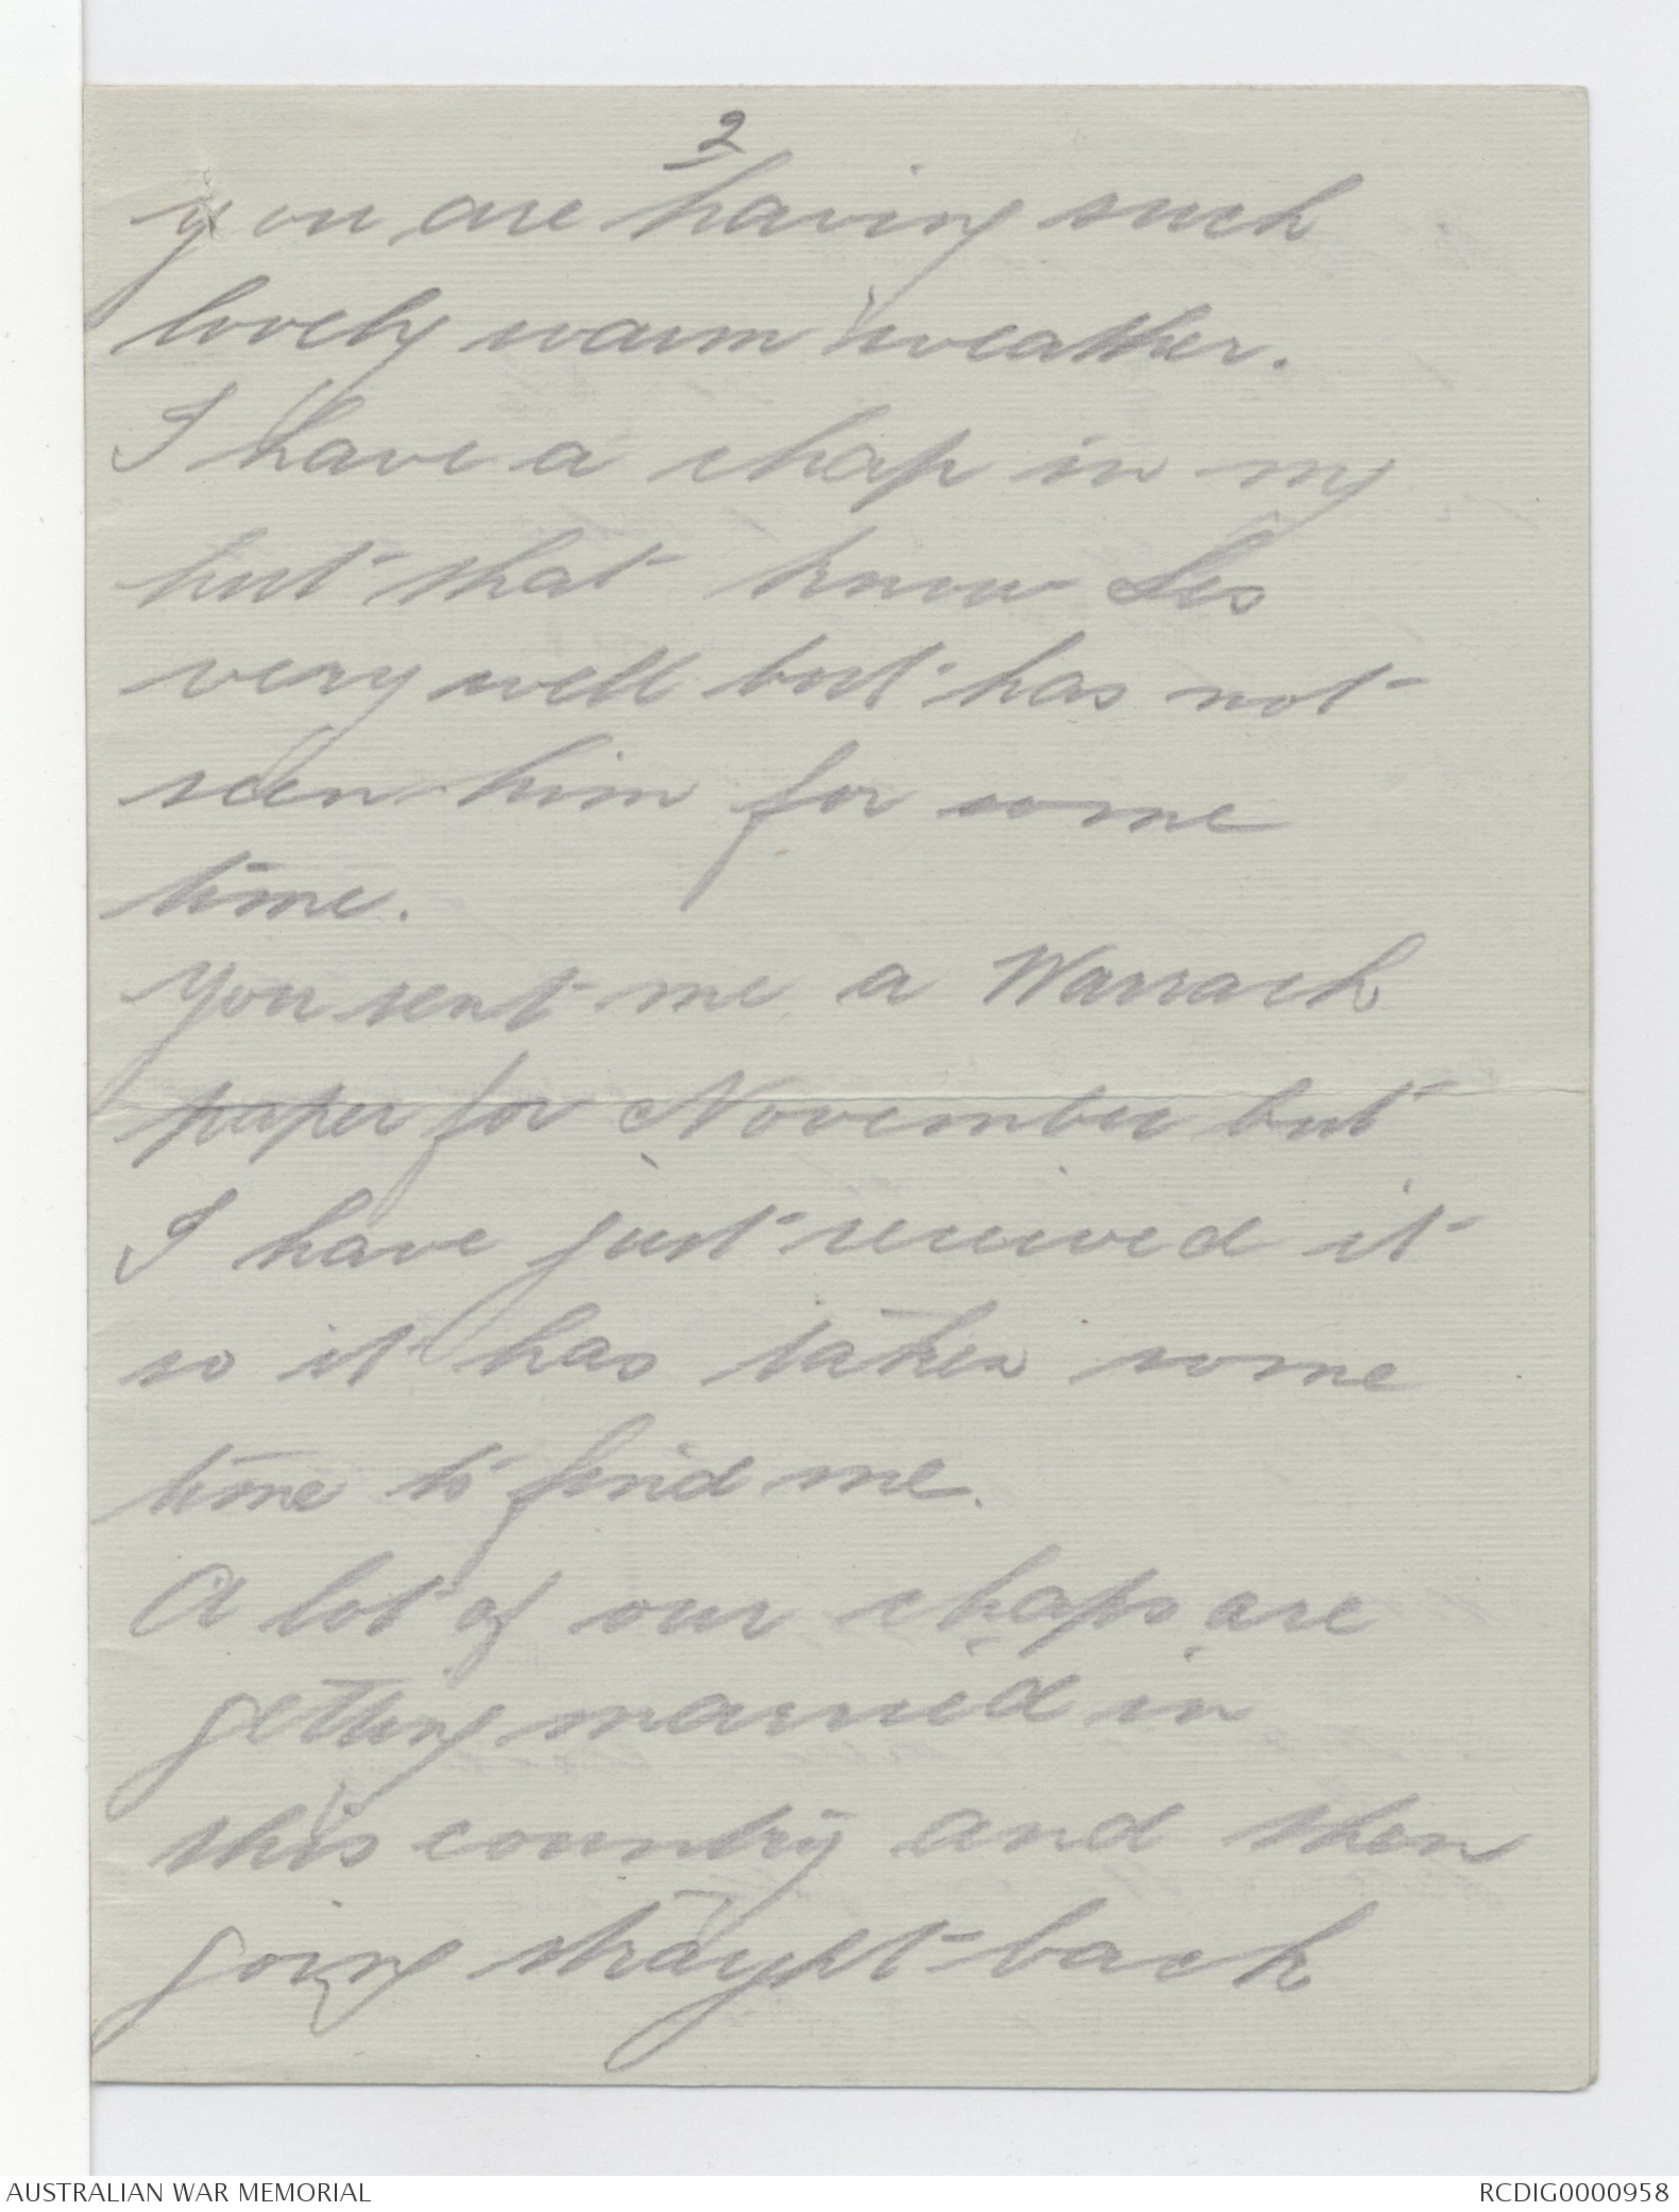 2
you are having such
lovely warm weather.
I have a chap in my
hut that know Les
very well but has not
seen him for some
time.
You sent me a Warrack
paper for November but
I have just received it
so it has taken some
time to find me.
A lot of our chaps are
getting married in
this country and then
going straight back
AUSTRALIAN WAR MEMORIAL
RCDIG0000958